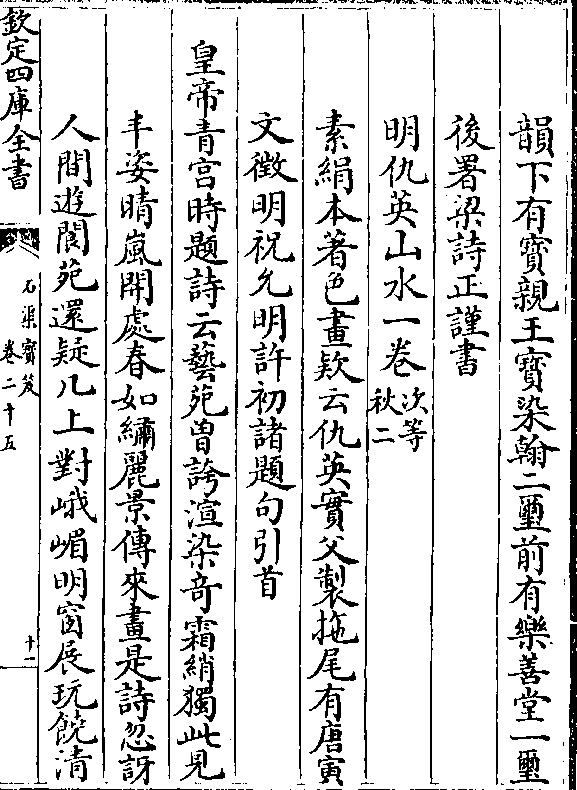 韻下有寳親王寳染翰二璽前有樂善堂一璽
後署梁詩正謹書
明仇英山水一卷次等秋二
素絹本著色畫欵云仇英實父製拖尾有唐寅
文徴明祝允明許初諸題句引首
皇帝青宫時題詩云藝苑曽誇渲染竒霜綃獨此見
丰姿晴嵐開處春如繡麗景傳來畫是詩忽訝
人間遊閬苑還疑几上對峨嵋明窗展玩饒清
欽定四庫全書
石渠寳笈
卷二十五
十一